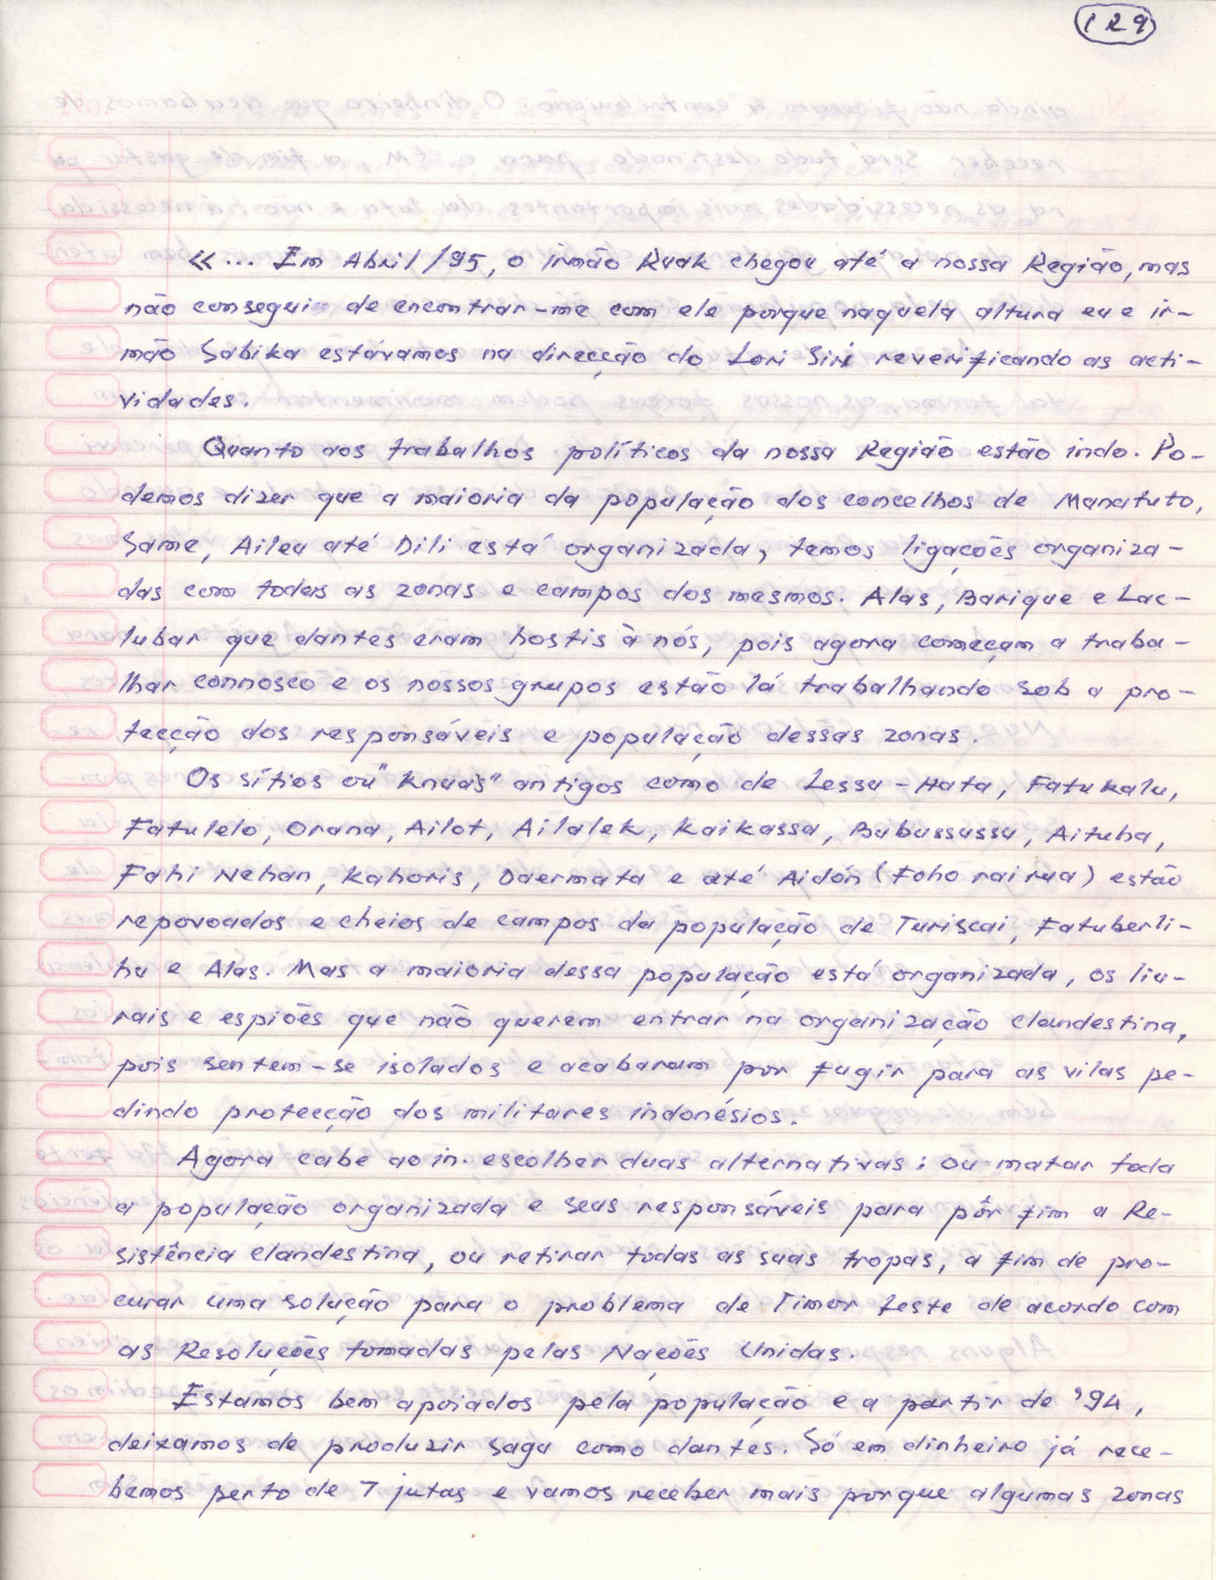 129
«... Em Abril/95, o irmão Ruak chegou até a nossa Região, mas
não consegui de encontrar-me com ele porque naquela altura eu e ir-
mão Sabika estávamos na direcção do Lori Siri reverificando as acti-
vidades.
Quanto aos trabalhos políticos da nossa Região estão indo. Po-
demos dizer que a maioria da população dos concelhos de Manatuto,
Same, Aileu até Dili está organizada, temos ligações organiza-
das com todas as zonas e campos dos mesmos. Alas, Barique e Lac-
lubar que dantes eram hostis à nós, pois agora começam a traba-
lhar connosco e os nossos grupos estão lá trabalhando sob a pro-
tecção dos responsáveis e população dessas zonas.
Os sítios ou "knuas" antigos como de Lessu-Hata, Fatukalu,
Fatulelo, Orana, Ailot, Ailalek, Kaikassa, Bubussussu, Aituha,
Fahi Nehan, Kahoris, Daermata e até Aidón (Foho rai rua) estão
repovoados e cheios de campos da população de Turiscai, Fatuberli-
hu e Alas. Mas a maioria dessa população está organizada, os liu-
rais e espiões que não querem entrar na organização clandestina,
pois sentem-se isolados e acabaram por fugir para as vilas pe-
dindo protecção dos militares indonésios.
Agora cabe ao in. escolher duas alternativas: ou matar toda
a população organizada e seus responsáveis para pôr fim a Re-
sistência clandestina, ou retirar todas as suas tropas, a fim de pro-
curar uma solução para o problema de Timor Leste de acordo com
as Resoluções tomadas pelas Nações Unidas.
Estamos bem apoiados pela população e a partir de '94,
deixamos de produzir sagu como dantes. Só em dinheiro já rece-
bemos perto de 7 jutas e vamos receber mais porque algumas zonas